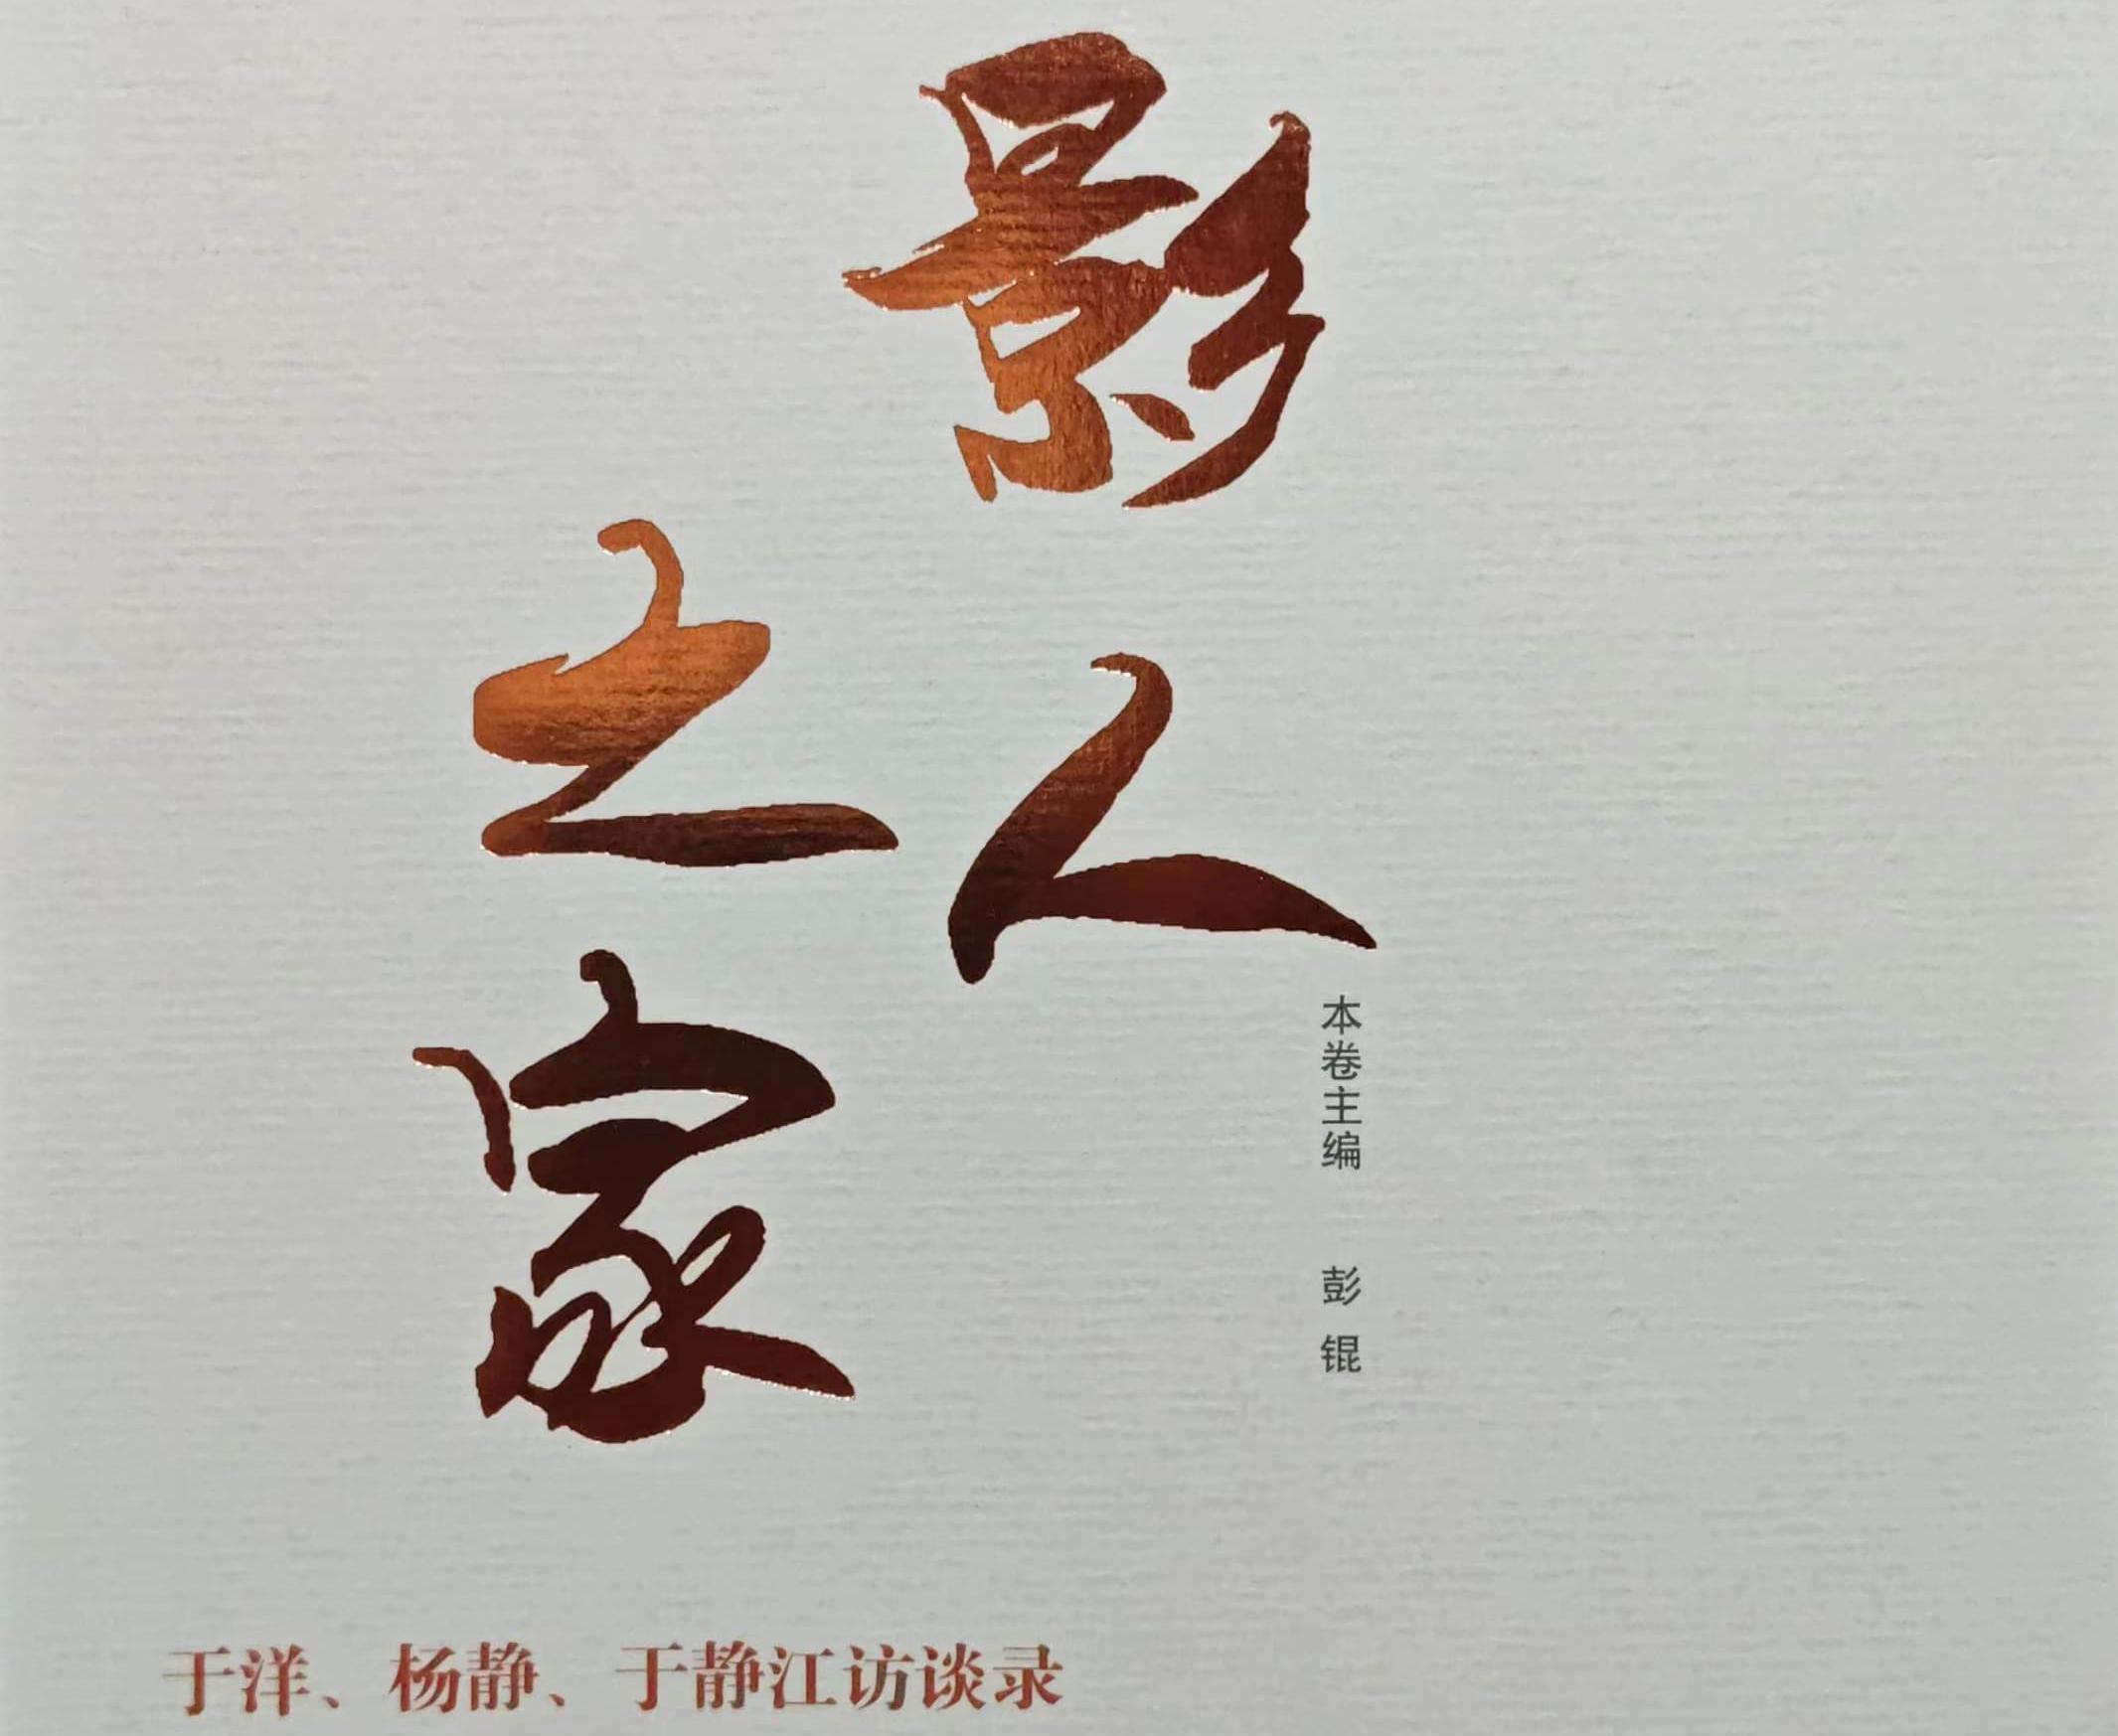 影人
之家
本卷主编 彭锟
于洋、杨静、于静江访谈录